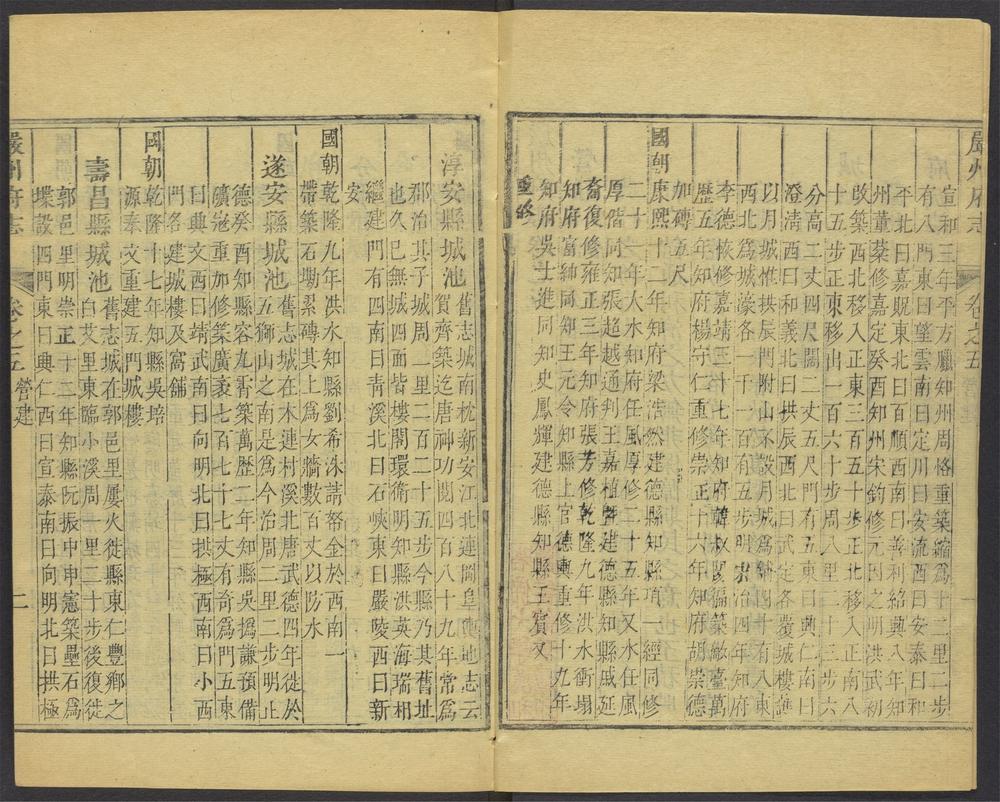 嚴州府志 卷之五 營建
宣和三年平方臘知州周恪重築縮為十二里二步
有八門東曰望雲南曰定川曰安流西曰安泰曰和
平北曰嘉貺東北曰百順西南曰善利紹興八年知
州董棻修嘉定癸酉知州宋鈞修元因之明洪武初
改築西北移入正東三百五十步正北移入正南八
十五步正東移出一百六十步周八里二十三步六
分高二丈四尺闊二丈五尺門有五東曰興仁南曰
澄清西曰和義北曰拱辰西北曰武定各覆城樓護
以月城惟拱辰門附山不設月城為鋪四十有八東
西北為城濠各一千一百有五步明弘治四年知府
李德恢修嘉靖三十七年知府韓叔陽福築敵臺萬
歷五年知府楊守仁重修崇正十六年知府胡崇德
加磚五尺
國朝康熙十二年知府梁浩然建德縣知縣項一經同修
二十一年大水知府任風厚修二十五年又水任風
厚偕同知張超越通判王嘉植暨建德知縣戚延
裔復修雍正三年知府張芳修乾隆九年洪水衝塌
知府富紳同知王元令知縣上官德輿重修十九年
知府吳士進同知史鳳輝建德縣知縣王賓又
重修
淳安縣城池舊志城南枕新安江北連岡阜輿地志云
賀齊築迄唐神功閱四百八十九年常為
郡治其子城周一里二百二十五步今縣乃其舊址
也久已無城四面皆樓閣環衛明知縣洪英海瑞相
繼建門有四南曰青溪北曰石峽東曰嚴陵西曰新
安
國朝乾隆九年洪水知縣劉希洙請帑金於西南一
帶築石磡累磚其上為女牆數百丈以防水
遂安縣城池舊志城在木連村溪北唐武德四年徙於
五獅山之南是為今治周二里二步明正
德癸酉知縣容九霄築萬歷二年知縣吳撝謙預備
礦寇重加修築廣袤七百七十七丈有奇為門五東
曰典文西曰靖武南曰向明北曰拱極西南曰小西
門各建城樓及窩鋪
國朝乾隆十七年知縣吳培
源奉文重建五門城樓
壽昌縣城池舊志城在郭邑里屢火徙縣東仁豐鄉之
白艾里東臨小溪周一里二十步後復徙
郭邑里明崇正十二年知縣阮振中申憲築壘石為
堞設四門東曰典仁西曰宣泰南曰向明北曰拱極
嚴州府志 卷之五 營建 二